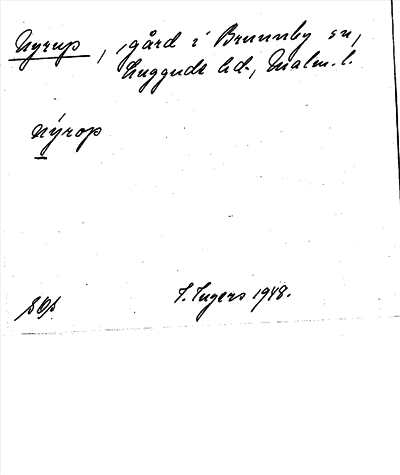 Nyrup, gård i Brunnby sn,
Luggude hd., Malm. l.
Nýrop
I. Ingers 1948.